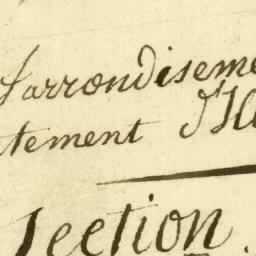 L'arrondiseme
tement d'Il
Section